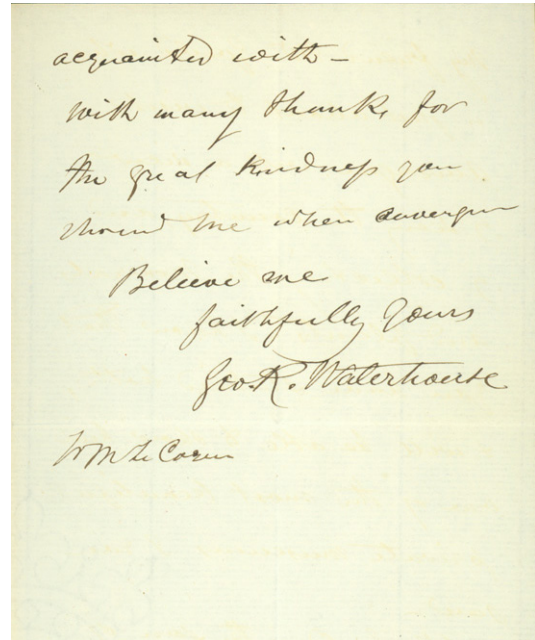 acquainted with –
with many thanks for
the great kindness you
showed me when
Believe me
faithfully yours
Geo. R. Waterhouse